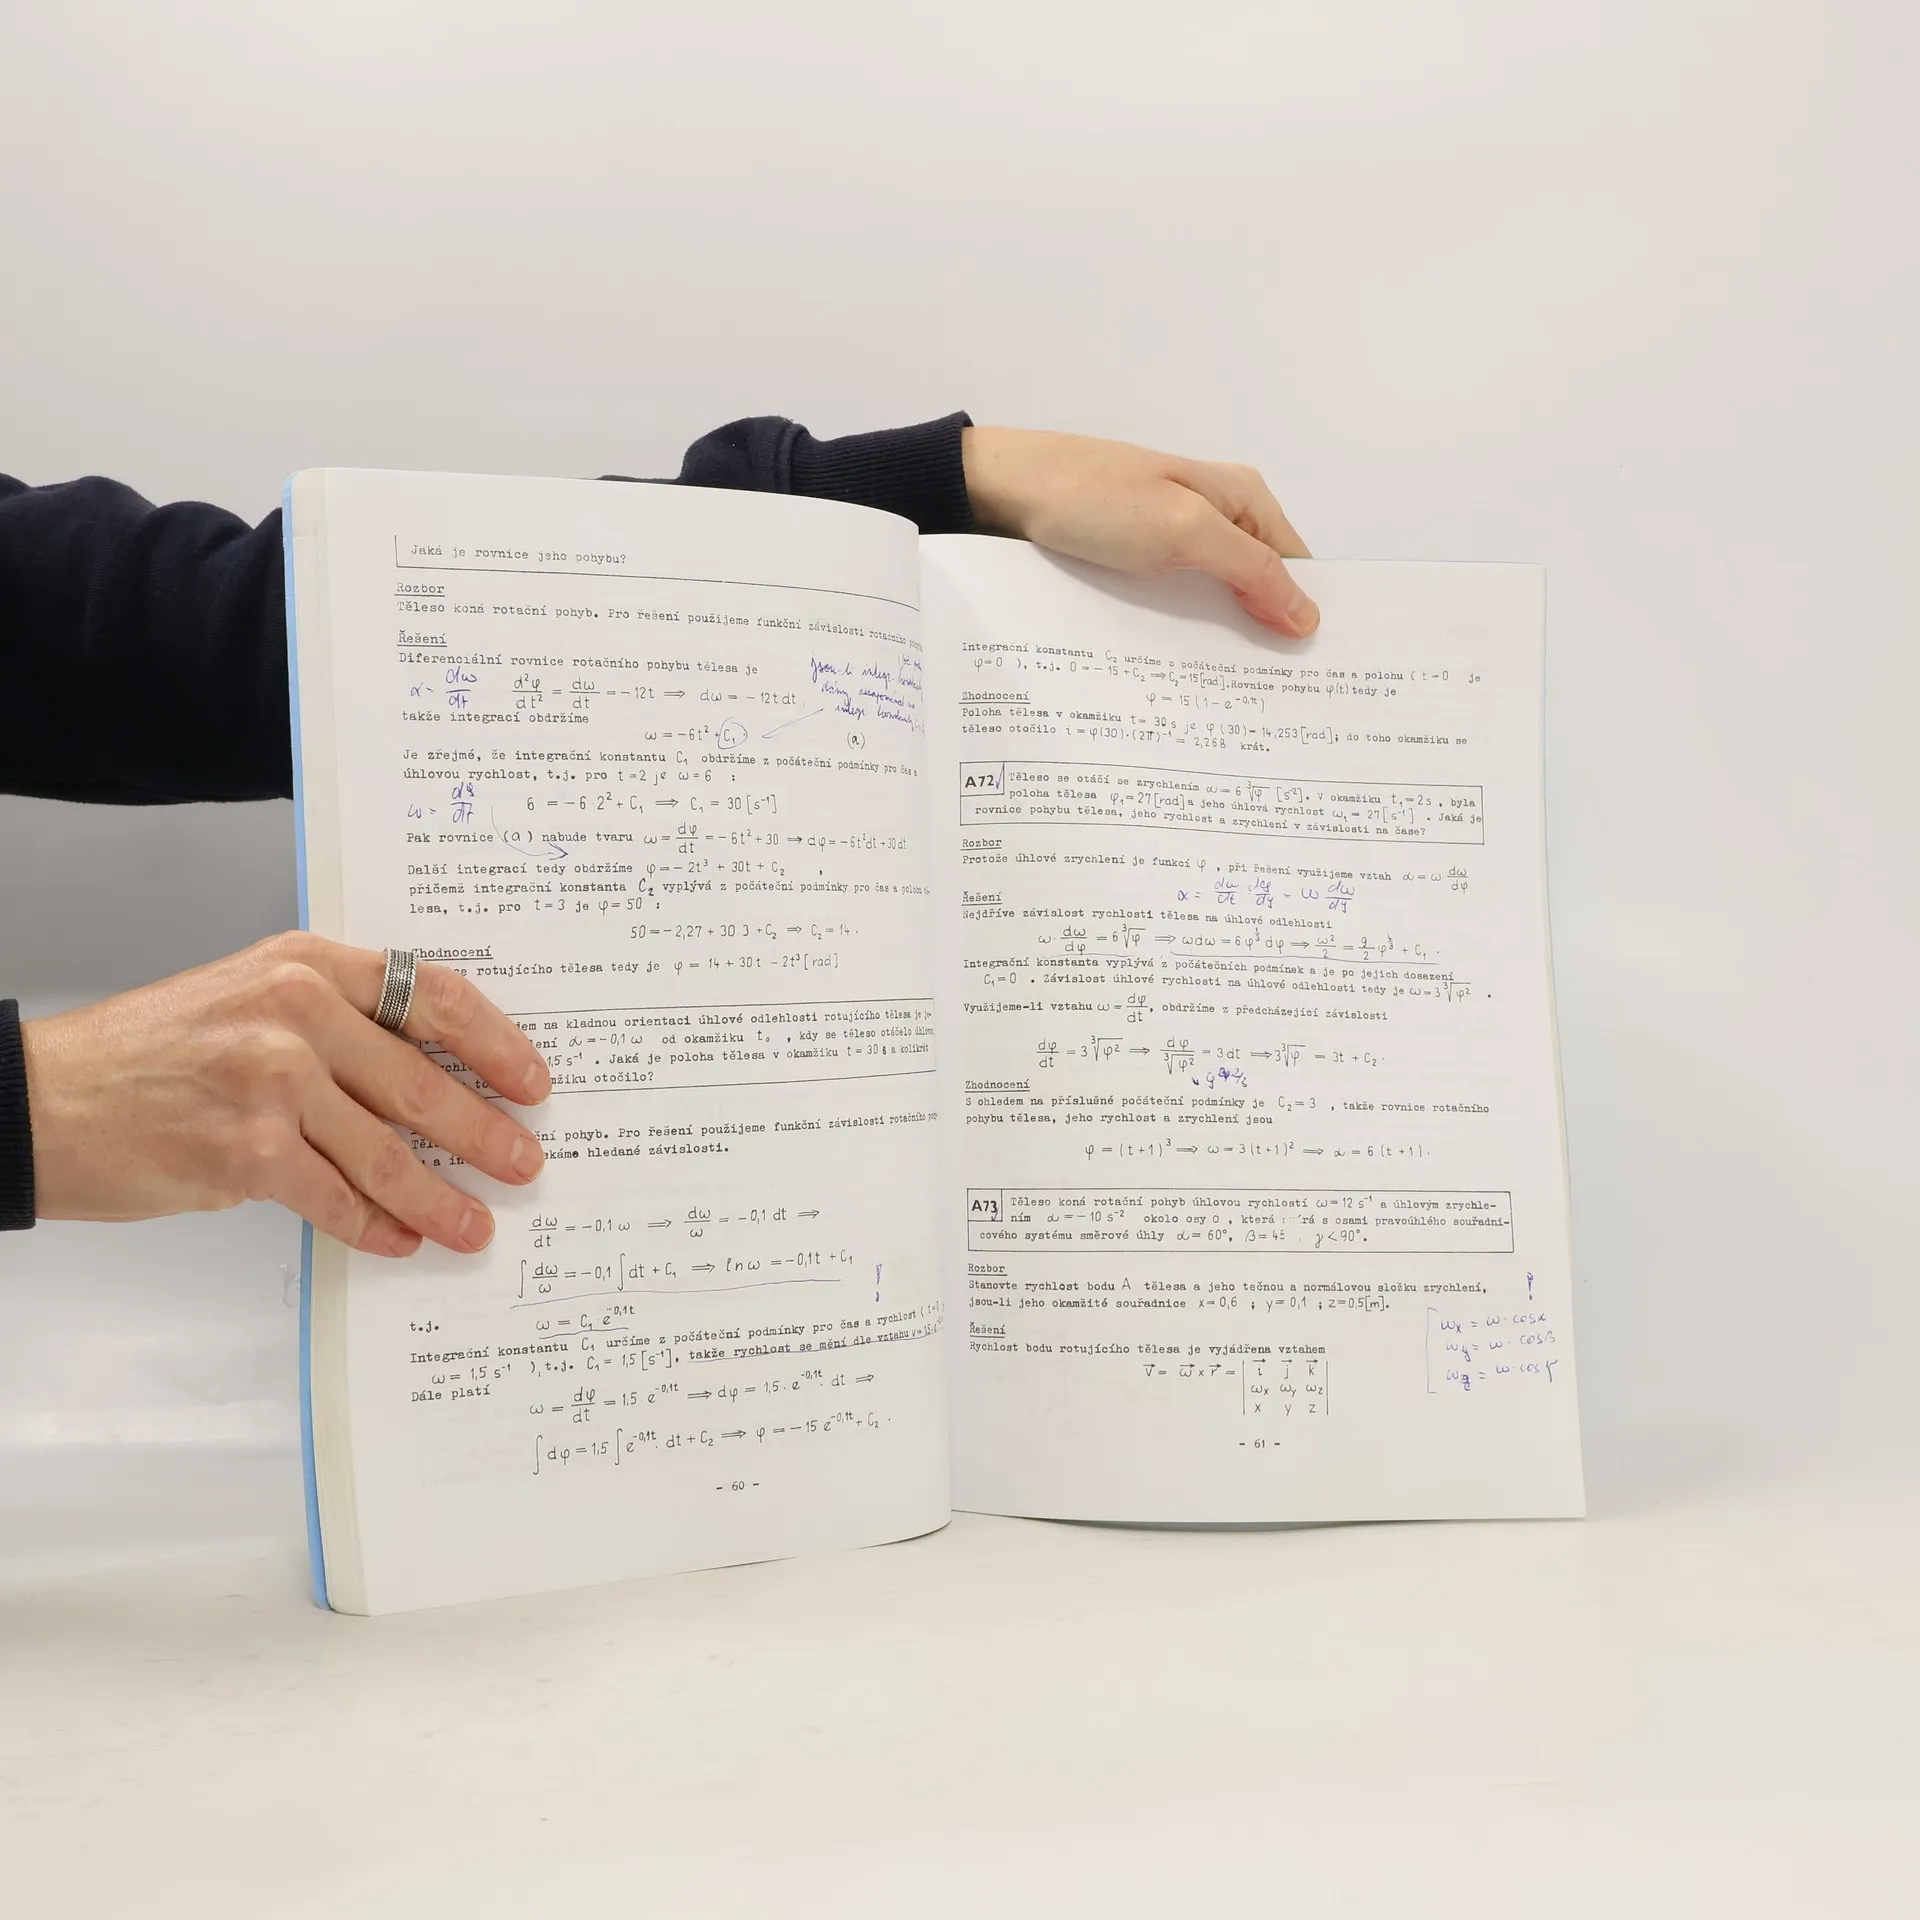 Jaká je rovnice jeho pohybu?
Rozbor
Těleso koná rotační pohyb. Pro řešení použijeme funkční závislosti rotačního
Řešení
Diferenciální rovnice rotačního pohybu tělesa je
jsou-li integr.
α = dω/dt d²φ/dt² = dω/dt = -12t ⟹ dω = -12t dt
takže integrací obdržíme
integr.
ω = -6t² + C₁ (a)
Je zřejmé, že integrační konstantu C₁ obdržíme z počáteční podmínky pro čas a
úhlovou rychlost, t.j. pro t=2 je ω=6 :
ω = dφ/dt 6 = -6·2² + C₁ ⟹ C₁ = 30 [s⁻¹]
Pak rovnice (a) nabude tvaru ω = dφ/dt = -6t² + 30 ⟹ dφ = -6t²dt + 30dt
Další integrací tedy obdržíme φ = -2t³ + 30t + C₂ ,
přičemž integrační konstanta C₂ vyplývá z počáteční podmínky pro čas a polohu
lesa, t.j. pro t=3 je φ=50 :
50 = -2,27 + 30.3 + C₂ ⟹ C₂ = 14 .
Zhodnocení
rotujícího tělesa tedy je φ = 14 + 30t - 2t³ [rad]
na kladnou orientaci úhlové odlehlosti rotujícího tělesa je
α = -0,1 ω od okamžiku t₀ , kdy se těleso otáčelo
1,5 s⁻¹ . Jaká je poloha tělesa v okamžiku t = 30 s a kolikrát
otočilo?
pohyb. Pro řešení použijeme funkční závislosti rotačního
hledané závislosti.
dω/dt = -0,1 ω ⟹ dω/ω = -0,1 dt ⟹
∫ dω/ω = -0,1 ∫ dt + C₁ ⟹ ln ω = -0,1t + C₁ !
t.j. ω = C₁ · e^-0,1t
Integrační konstantu C₁ určíme z počáteční podmínky pro čas a rychlost
ω = 1,5 s⁻¹ ), t.j. C₁ = 1,5 [s⁻¹], takže rychlost se mění dle vztahu
Dále platí
ω = dφ/dt = 1,5 e^-0,1t ⟹ dφ = 1,5 . e^-0,1t . dt ⟹
∫ dφ = 1,5 ∫ e^-0,1t . dt + C₂ ⟹ φ = -15 e^-0,1t + C₂ .
- 60 -
Integrační konstantu C₂ určíme z počáteční podmínky pro čas a polohu ( t=0 je
φ=0 ), t.j. 0 = -15 + C₂ ⟹ C₂ = 15[rad]. Rovnice pohybu φ(t) tedy je
φ = 15 (1 - e^-0,1t)
Zhodnocení
Poloha tělesa v okamžiku t = 30 s je φ (30) = 14,253 [rad]; do toho okamžiku se
těleso otočilo i = φ(30).(2π)⁻¹ = 2,268 krát.
A72 Těleso se otáčí se zrychlením α = 6 ∛φ [s⁻²]. V okamžiku t₁ = 2s , byla
poloha tělesa φ₁ = 27 [rad] a jeho úhlová rychlost ω₁ = 27 [s⁻¹] . Jaká je
rovnice pohybu tělesa, jeho rychlost a zrychlení v závislosti na čase?
Rozbor
Protože úhlové zrychlení je funkcí φ , při řešení využijeme vztah α = ω dω/dφ
α = dω/dt · dφ/dφ = ω dω/dφ
Řešení
Nejdříve závislost rychlosti tělesa na úhlové odlehlosti
ω · dω/dφ = 6 ∛φ ⟹ ωdω = 6 φ^1/3 dφ ⟹ ω²/2 = 9/2 φ^4/3 + C₁ .
Integrační konstanta vyplývá z počátečních podmínek a je po jejich dosazení
C₁ = 0 . Závislost úhlové rychlosti na úhlové odlehlosti tedy je ω = 3 ∛φ² .
Využijeme-li vztahu ω = dφ/dt, obdržíme z předcházející závislosti
dφ/dt = 3 ∛φ² ⟹ dφ/∛φ² = 3 dt ⟹ 3 ∛φ = 3t + C₂ .
Zhodnocení
S ohledem na příslušné počáteční podmínky je C₂ = 3 , takže rovnice rotačního
pohybu tělesa, jeho rychlost a zrychlení jsou
φ = (t+1)³ ⟹ ω = 3 (t+1)² ⟹ α = 6 (t+1) .
A73 Těleso koná rotační pohyb úhlovou rychlostí ω = 12 s⁻¹ a úhlovým zrychle-
ním α = -10 s⁻² okolo osy o , která s osami pravoúhlého souřadni-
cového systému směrové úhly α = 60°, β = 45 , γ < 90°.
Rozbor
Stanovte rychlost bodu A tělesa a jeho tečnou a normálovou složku zrychlení, !
jsou-li jeho okamžité souřadnice x = 0,6 ; y = 0,1 ; z = 0,5[m].
Řešení
Rychlost bodu rotujícího tělesa je vyjádřena vztahem
ωx = ω · cos α
ωy = ω · cos β
ωz = ω · cos γ
v⃗ = ω⃗ x r⃗ = | i⃗ j⃗ k⃗ |
| ωx ωy ωz |
| x y z |
- 61 -